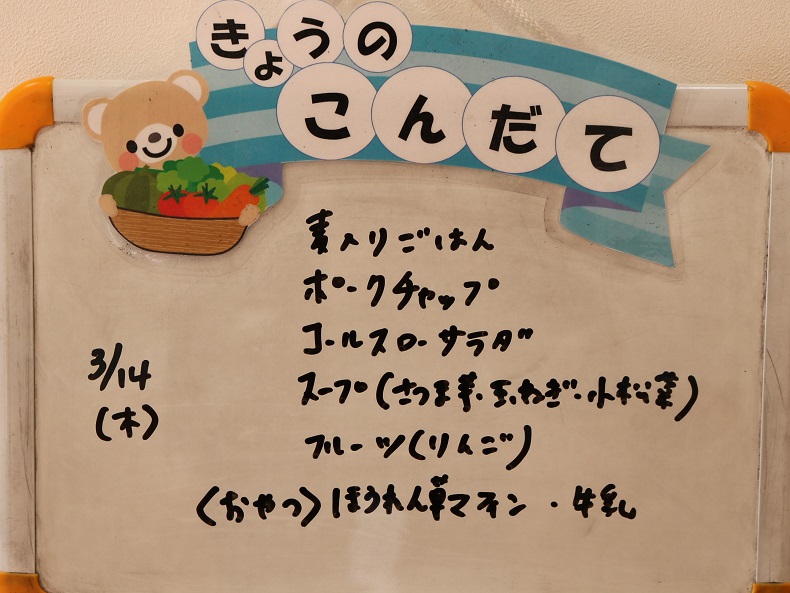 きょうの
こんだて
麦入りごはん
ポークチャップ
コールスローサラダ
3/14
(木)
スープ(さつま芋・玉ねぎ・小松菜)
フルーツ(りんご)
〈おやつ〉ほうれん草マフィン・牛乳